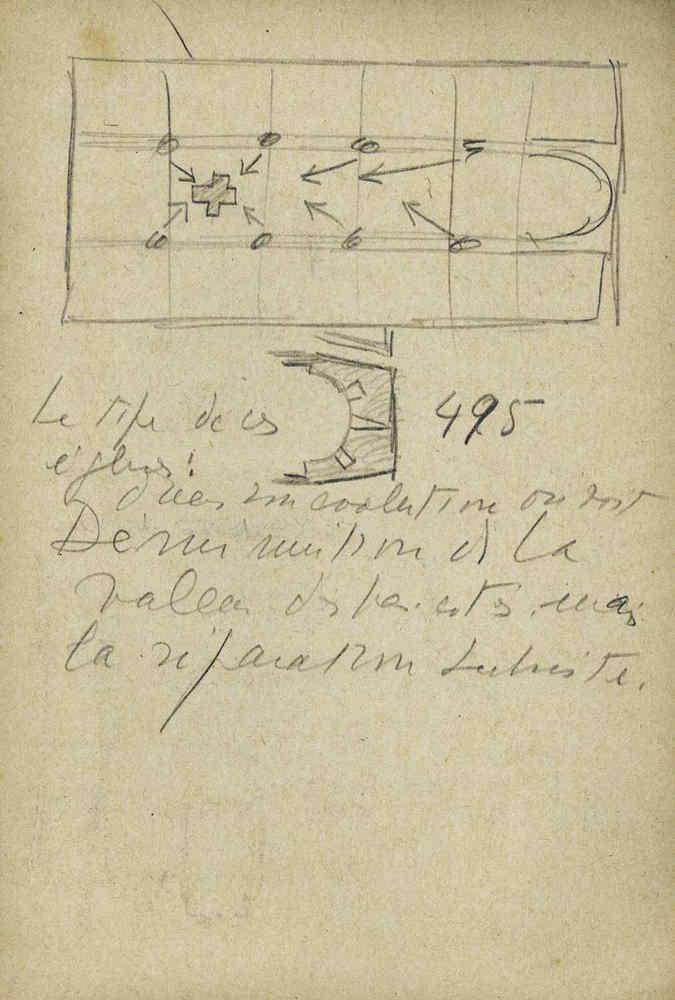 Le type de ces
495
églises:
dans son évolution on voit
Déminuition de la
valeur des bas. cotés, mais
la séparation subsiste.